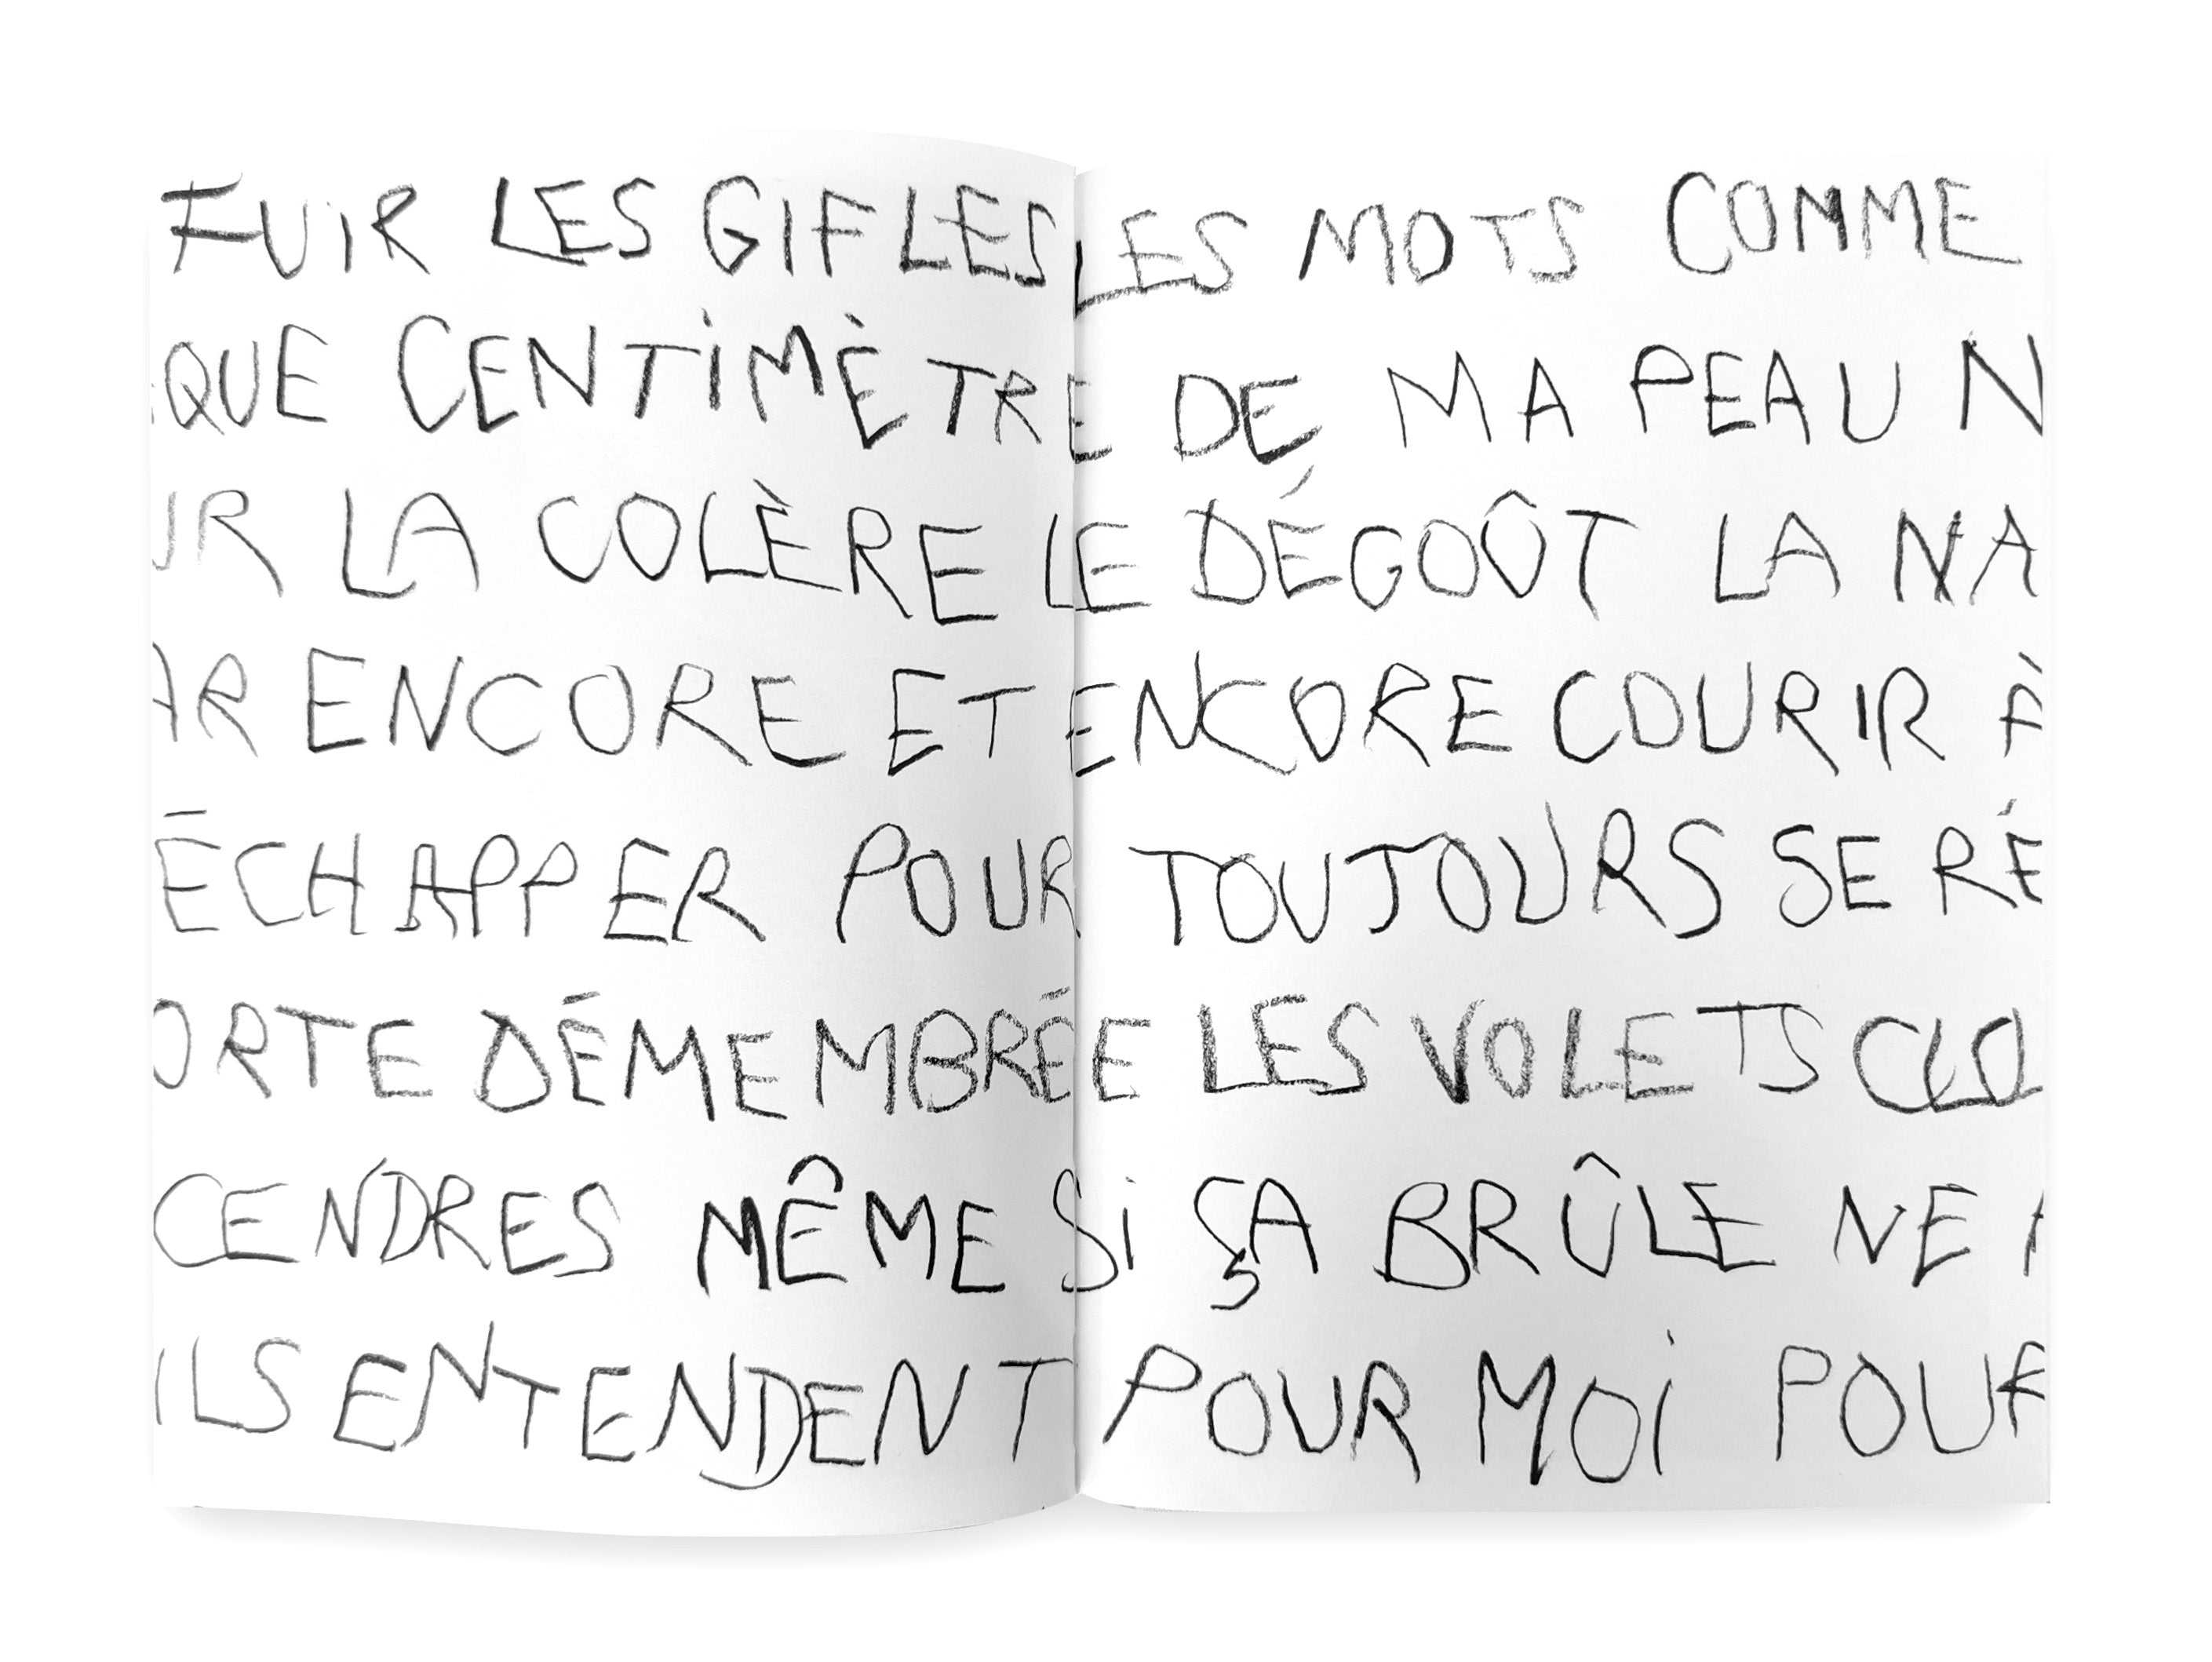 FUIR LES GIFLES LES MOTS COMME
QUE CENTIMÈTRE DE MA PEAU N
UR LA COLÈRE LE DÉGOÛT LA NA
AR ENCORE ET ENCORE COURIR À
ÉCHAPPER POUR TOUJOURS SE RÉ
ORTE DÉMEMBRÉE LES VOLETS CLO
CENDRES MÊME SI ÇA BRÛLE NE
ILS ENTENDENT POUR MOI POUR